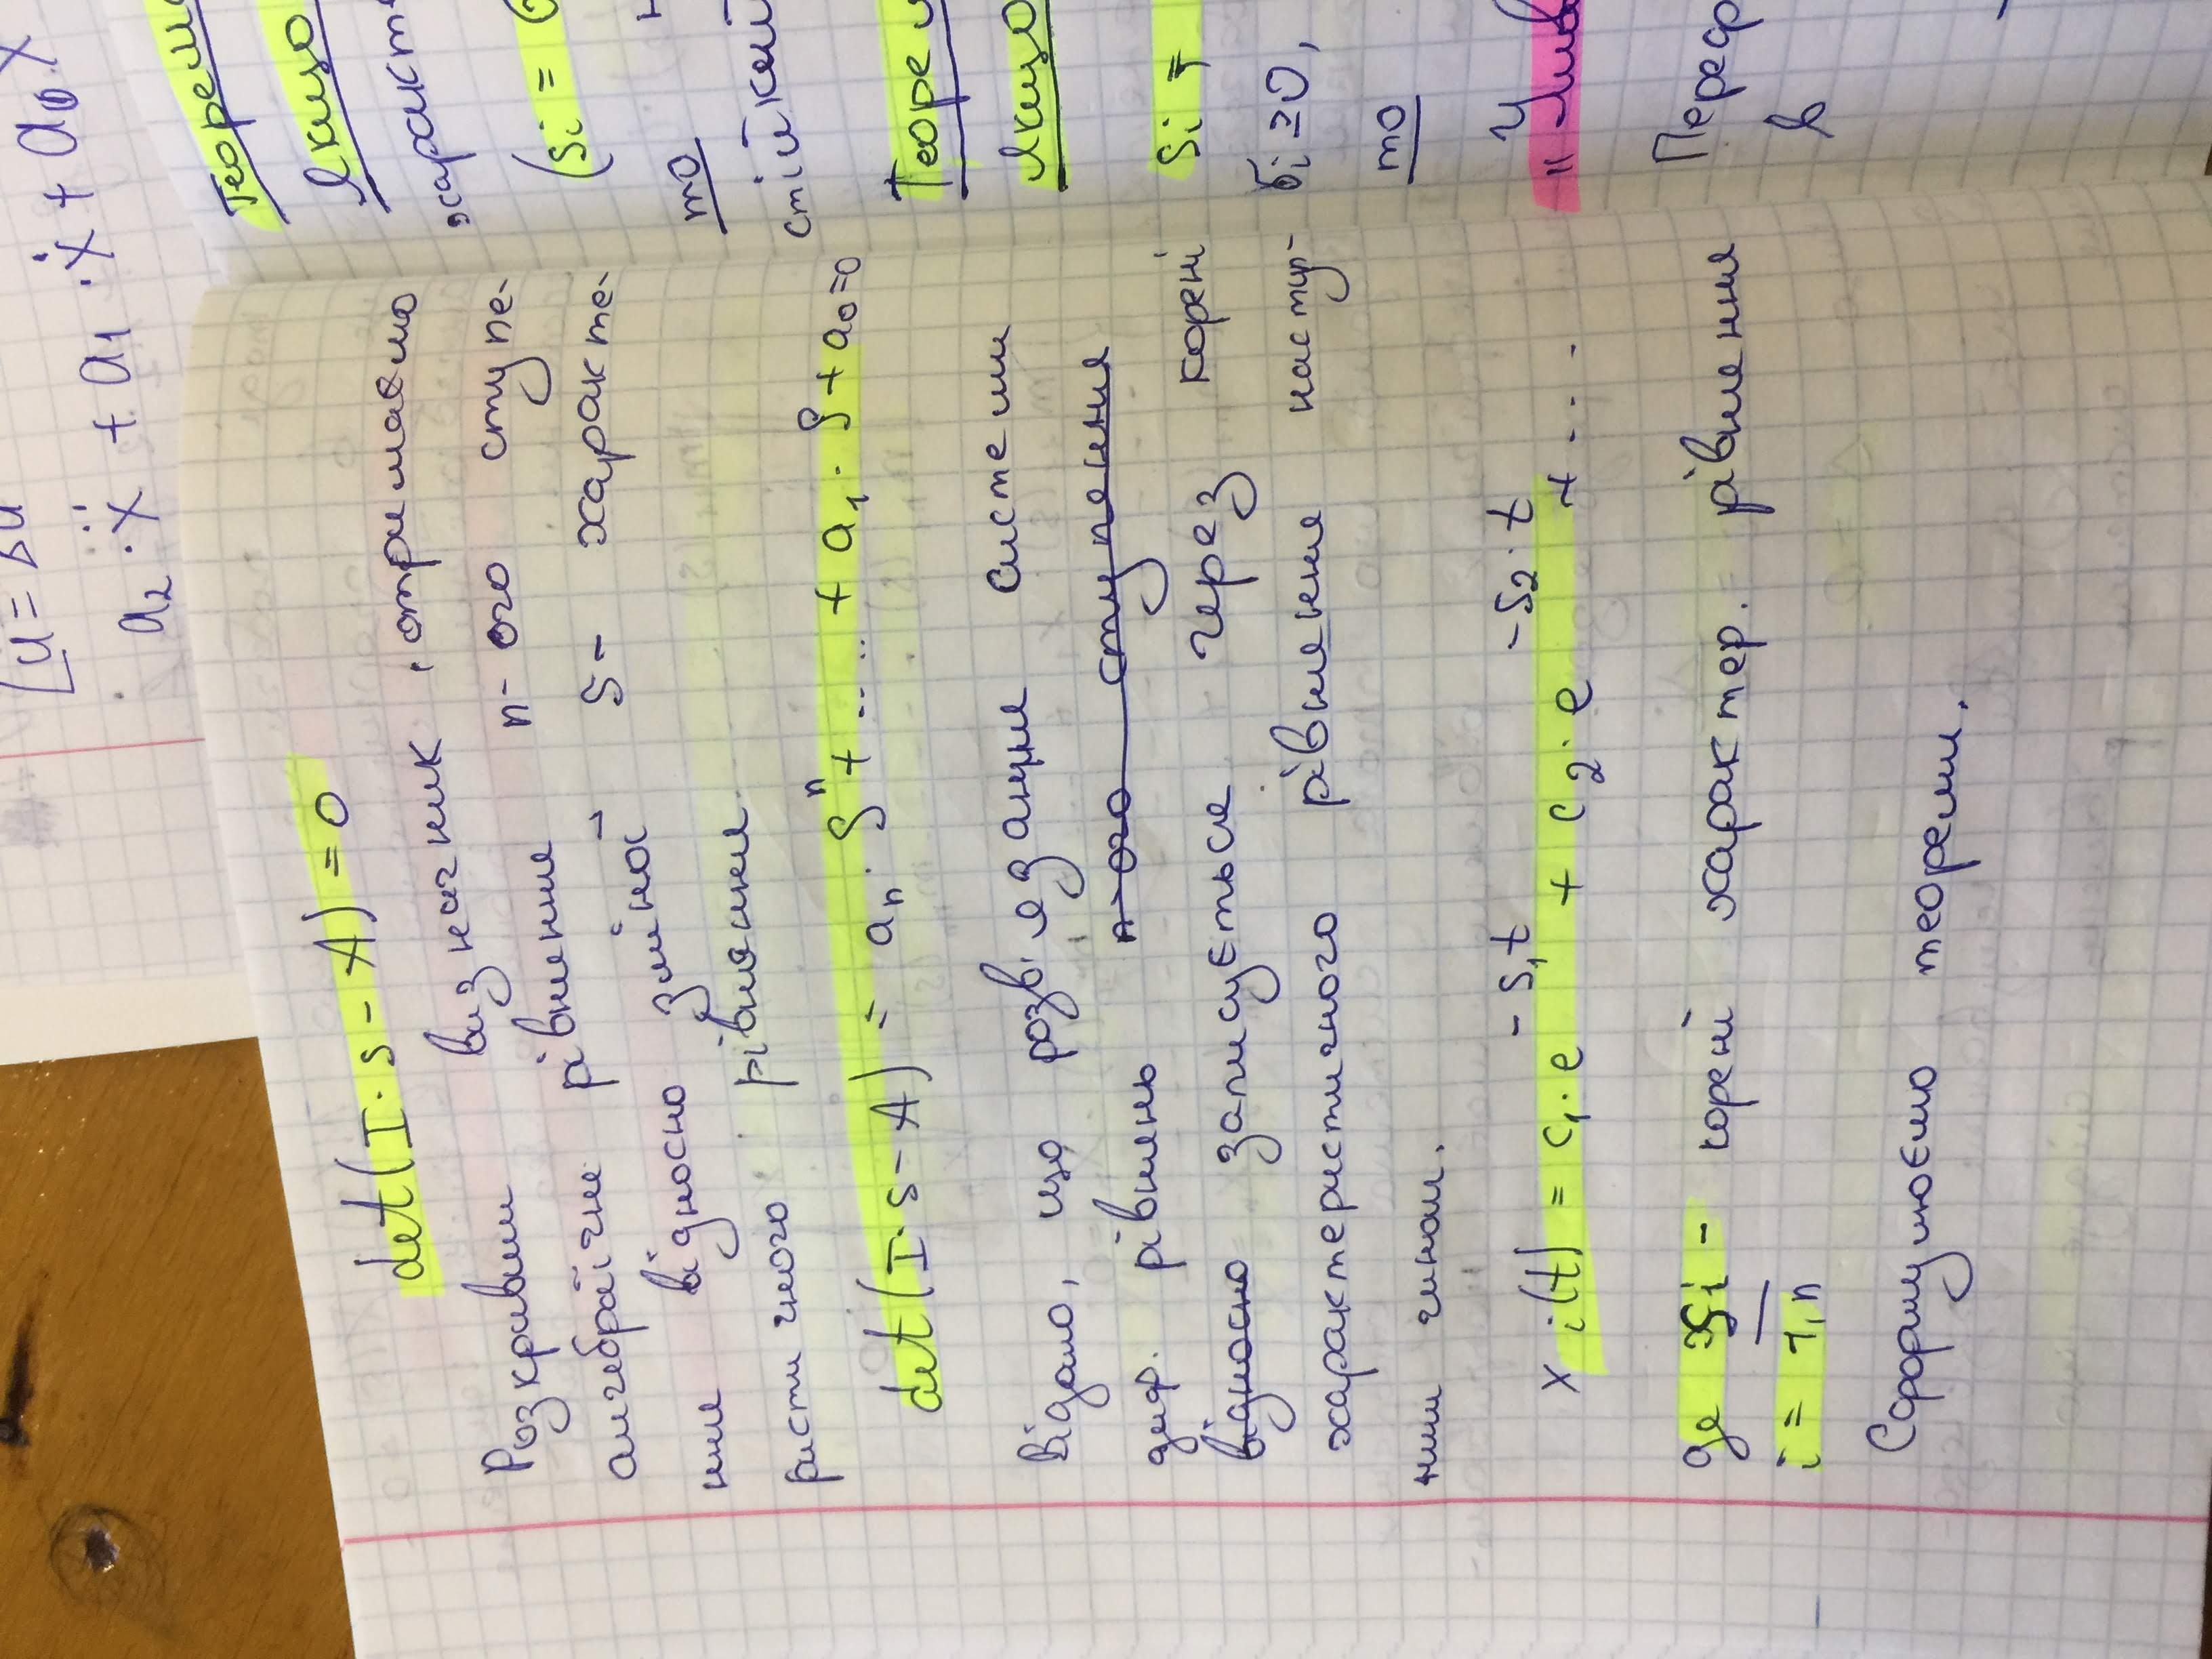 [u = Δu
a₂·ẍ + a₁·ẋ + a₀ x
det(I·s - A) = 0
Розкривши визначник, отримаємо
алгебраїчне рівняння n-ого ступе-
ння відносно змінної s - характе-
ристичного рівняння
det(I·s - A) = aₙ·Sⁿ + ..... + a₁·S + a₀ = 0
Відомо, що розв'язання системи
диф. рівнянь n-ого ступення
відносно записується через корені
характеристичного рівняння наступ-
ним чином.
x i(t) = c₁·e^(-s₁t) + c₂·e^(-s₂·t) + ...
де si - корені характер. рівняння
i = 1,n
Сформулюємо теореми.
Теорем
Якщо
характе
(si =
то н
стійкий
Теорем
Якщо
si =
бi ≥ 0,
то
Переф
в